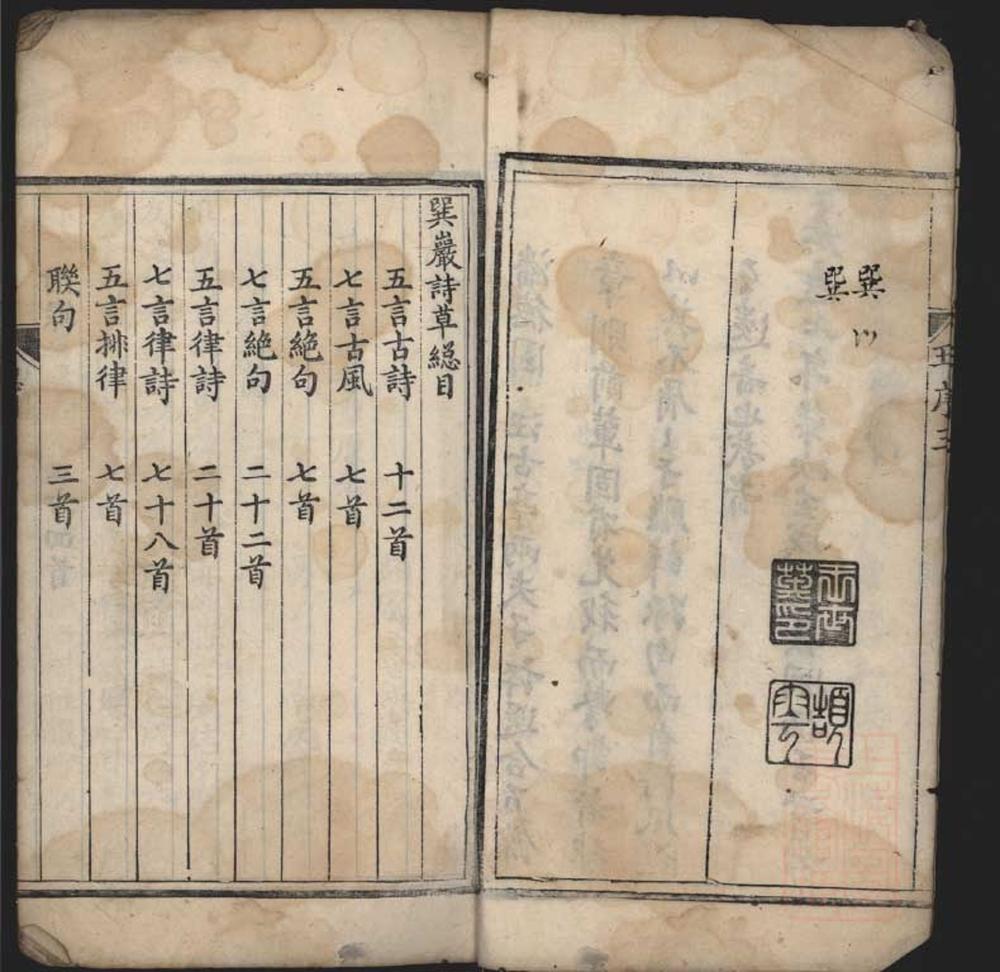 巽
川
巽
王序三
王世英印
頡雲
巽巖詩草總目
五言古詩 十二首
七言古風 七首
五言絕句 七首
七言絕句 二十二首
五言律詩 二十首
七言律詩 七十八首
五言排律 七首
聯句 三首